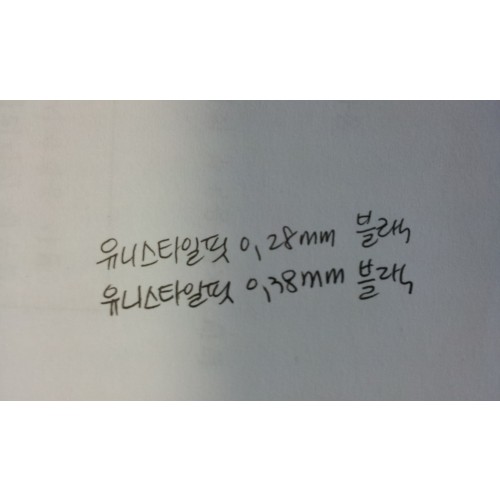 유니스타일핏 0,28mm 블랙
유니스타일핏 0,38mm 블랙